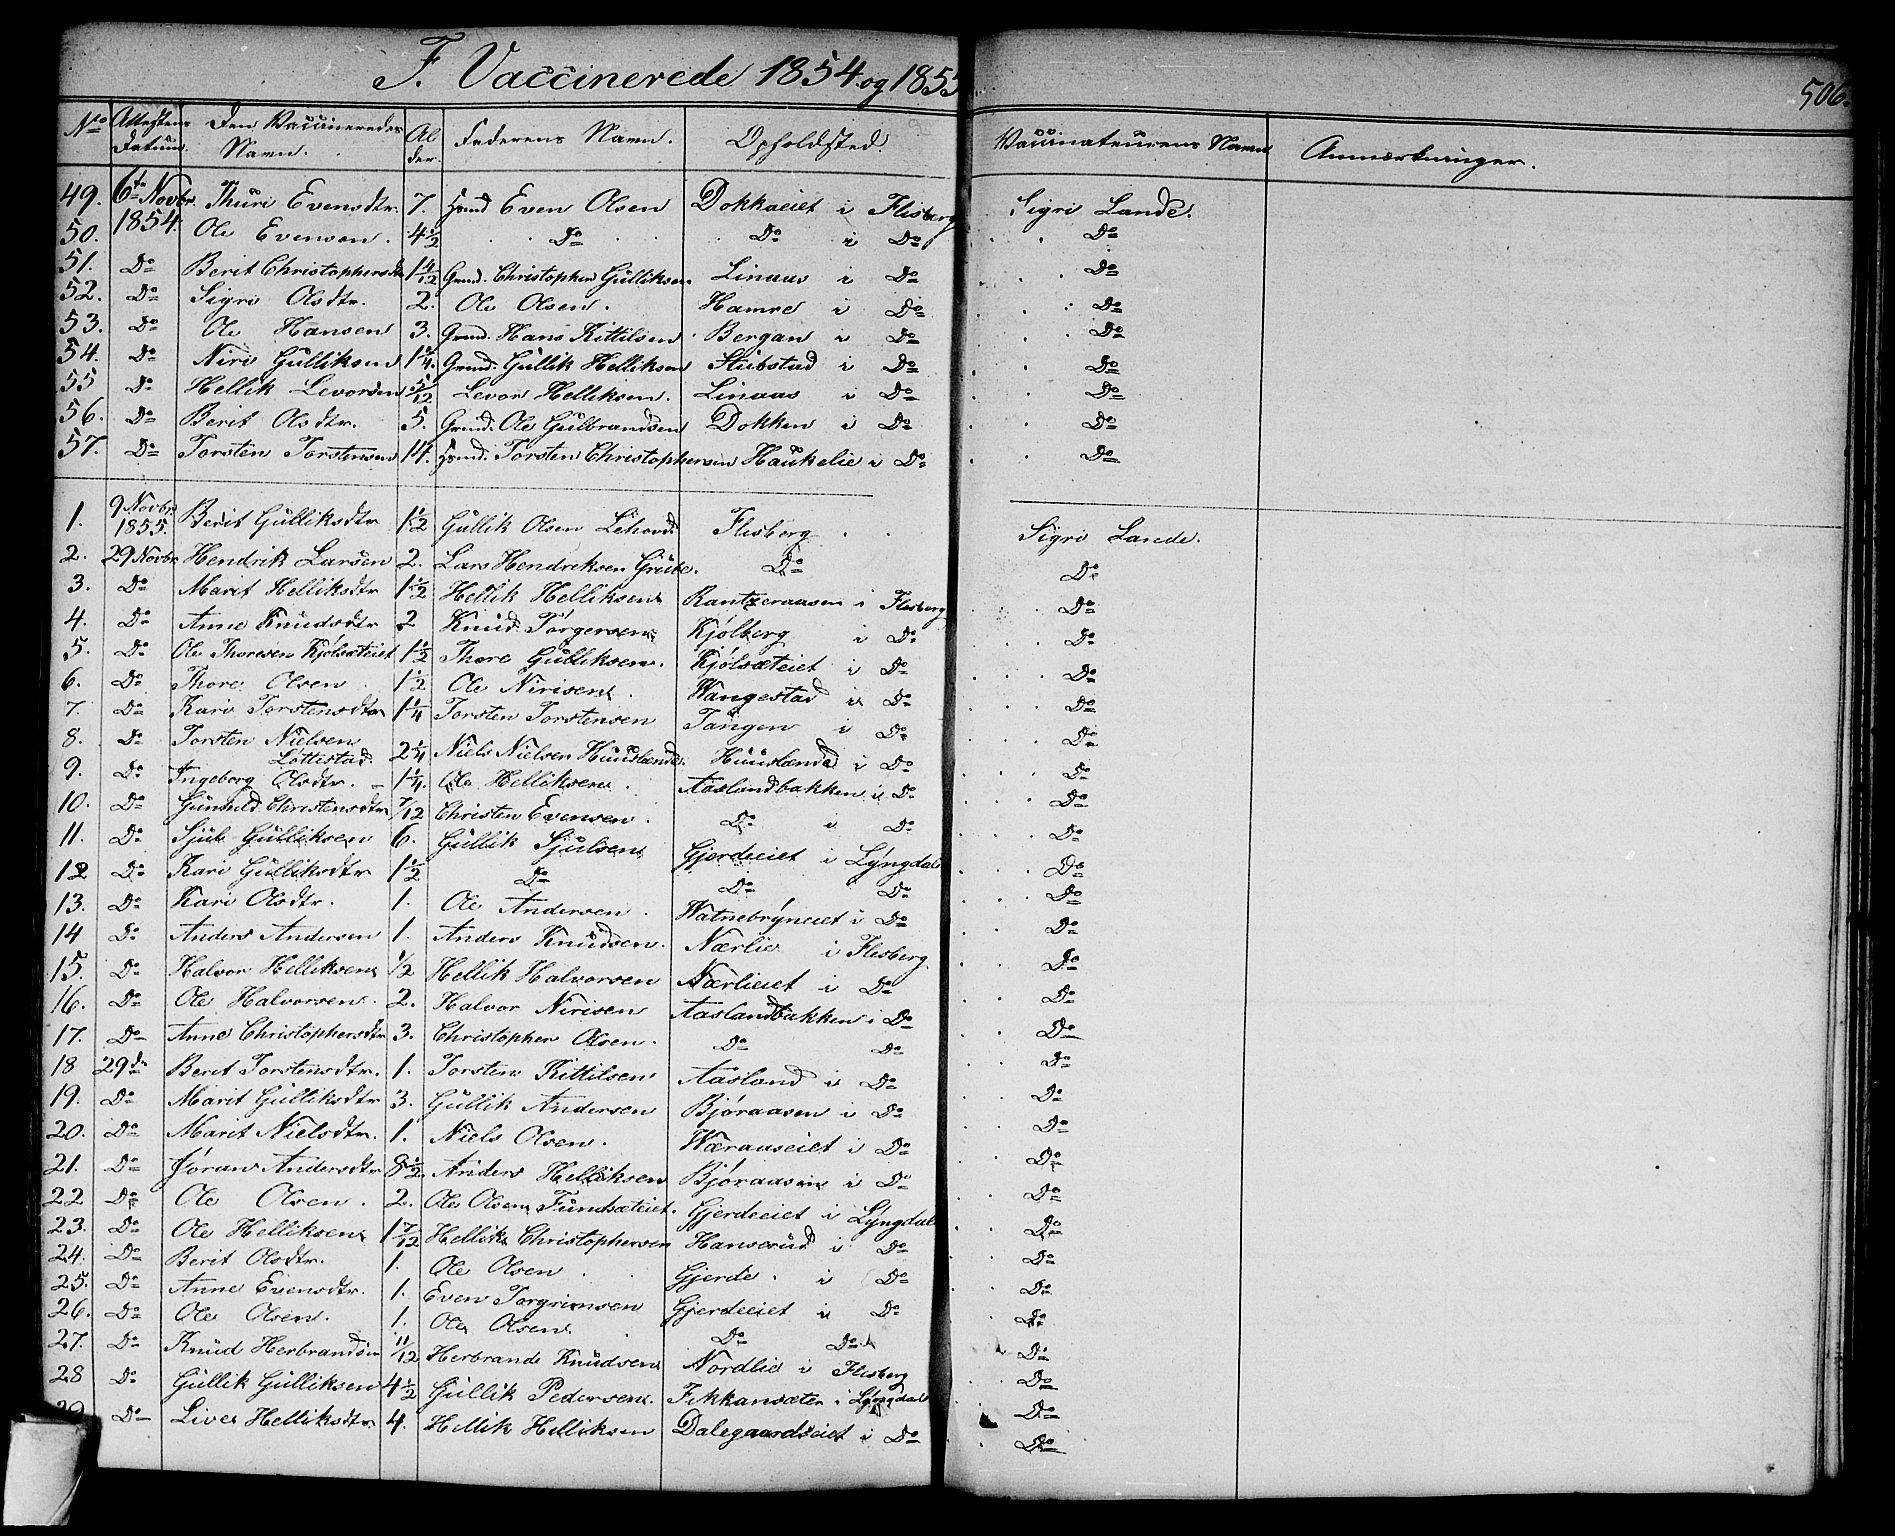 F. Vaccinerede 1854. og 1855
506.
No Attestens Datum. Den Vaccineredes Navn. Alder. Faderens Navn. Opholdsted. Vaccinateurens Navn Anmærkninger.
49. 6te Novbr. 1854. Thuri Evensdtr. 7. Hsmd Even Olsen Dokkaeiet i Flisberg Sigri Lande.
50. Ole Evensen. 4 1/2 Do Do i Do Do
51. Do Berit Christophersdtr 1 4/12 Grmd. Christopher Gulliksen Linaas i Do Do
52. Do Sigri Olsdtr. 2. Ole Olsen. Hamre i Do Do
53. Do Ole Hansen 3. Grmd. Hans Kittilsen Bergan i Do Do
54. Do Niri Gulliksen 1 1/4. Grmd. Gullik Helliksen Stubstad i Do Do
55 Do Hellik Levorsen 5/12 Levor Helliksen. Linaas i Do Do
56. Do Berit Olsdtr. 5. Grmd. Ole Gulbrandsen Dokken i Do Do
57. Do Torsten Torstensen 14. Hsmd. Torsten Christophersen Haukelie i Do Do
1. 9 Novbr. 1855. Berit Gulliksdtr 1 1/2 Gullik Olsen Lihovd Flisberg Sigri Lande.
2. 29 Novbr Hendrik Larsen 2. Lars Hendriksen Grube. Do Do
3. Do Marit Helliksdtr 1 1/2 Hellik Helliksen Rantzeraasen i Flisberg Do
4. Do Anne Knudsdtr 2 Knud Torgersen Kjølberg i Do Do
5. Do Ole Thoresen Kjølsæteiet 1 1/2 Thore Gulliksen. Kjølsæteiet i Do Do
6. Do Thore Olsen 1 1/2 Ole Nirisen. Wangestad i Do Do
7. Do Kari Torstensdtr 1 1/4 Torsten Torstensen Tangen i Do Do
8. Do Torsten Nielsen Løttestad 2 1/4 Niels Nielsen Huuslende. Huuslende i Do Do
9. Do Ingeborg Olsdtr. 1 1/4. Ole Helliksen. Aaslandbakken i Do Do
10. Do Gunhild Christensdtr 7/12 Christen Evensen. Do i Do Do
11. Do Sjul Gulliksen 6. Gullik Sjulsen Gjerdeeiet i Lyngdal Do
12 Do Kari Gulliksdtr 1 1/2 Do Do Do Do
13. Do Kari Olsdtr. 1. Ole Andersen. Watnebryneiet i Do Do
14 Do Anders Andersen 1. Anders Knudsen. Nærlie i Flisberg Do
15. Do Halvor Helliksen 1/2 Hellik Halvorsen Nærlieiet i Do Do
16. Do Ole Halvorsen. 2. Halvor Nirisen Aaslandbakken i Do Do
17. Do Anne Christophersdtr 3. Christopher Olsen. Do Do Do
18 29de Berit Torstensdtr. 1. Torsten Kittilsen Aasland i Do Do
19. Do Marit Gulliksdtr 3. Gullik Andersen Bjøraasen i Do Do
20. Do Marit Nielsdtr. 1. Niels Olsen. Wæraaseiet i Do Do
21. Do Jøran Andersdtr 8 1/2 Anders Helliksen Bjøraasen i Do Do
22 Do Ole Olsen. 2. Ole Olsen Fundsæteiet. Gjerdeeiet i Lyngdal Do
23. Do Ole Helliksen 1 7/12 Hellik Christophersen Hanserud i Do Do
24. Do Berit Olsdtr. 1. Ole Olsen Gjerde. i Do Do
25. Do Anne Evensdtr. 1. Even Torgrimsen Gjerdeeiet i Do Do
26. Do Ole Olsen. 1. Ole Olsen. Do Do. Do
27. Do Knud Herbrandsen 11/12 Herbrand Knudsen Nordlie i Flisberg Do
28 Do Gullik Gulliksen 4 1/2 Gullik Pedersen. Fikkansæter i Lyngdal Do
29 Do Live Helliksdtr 4. Hellik Helliksen Dalegaardseiet i Do Do
Do